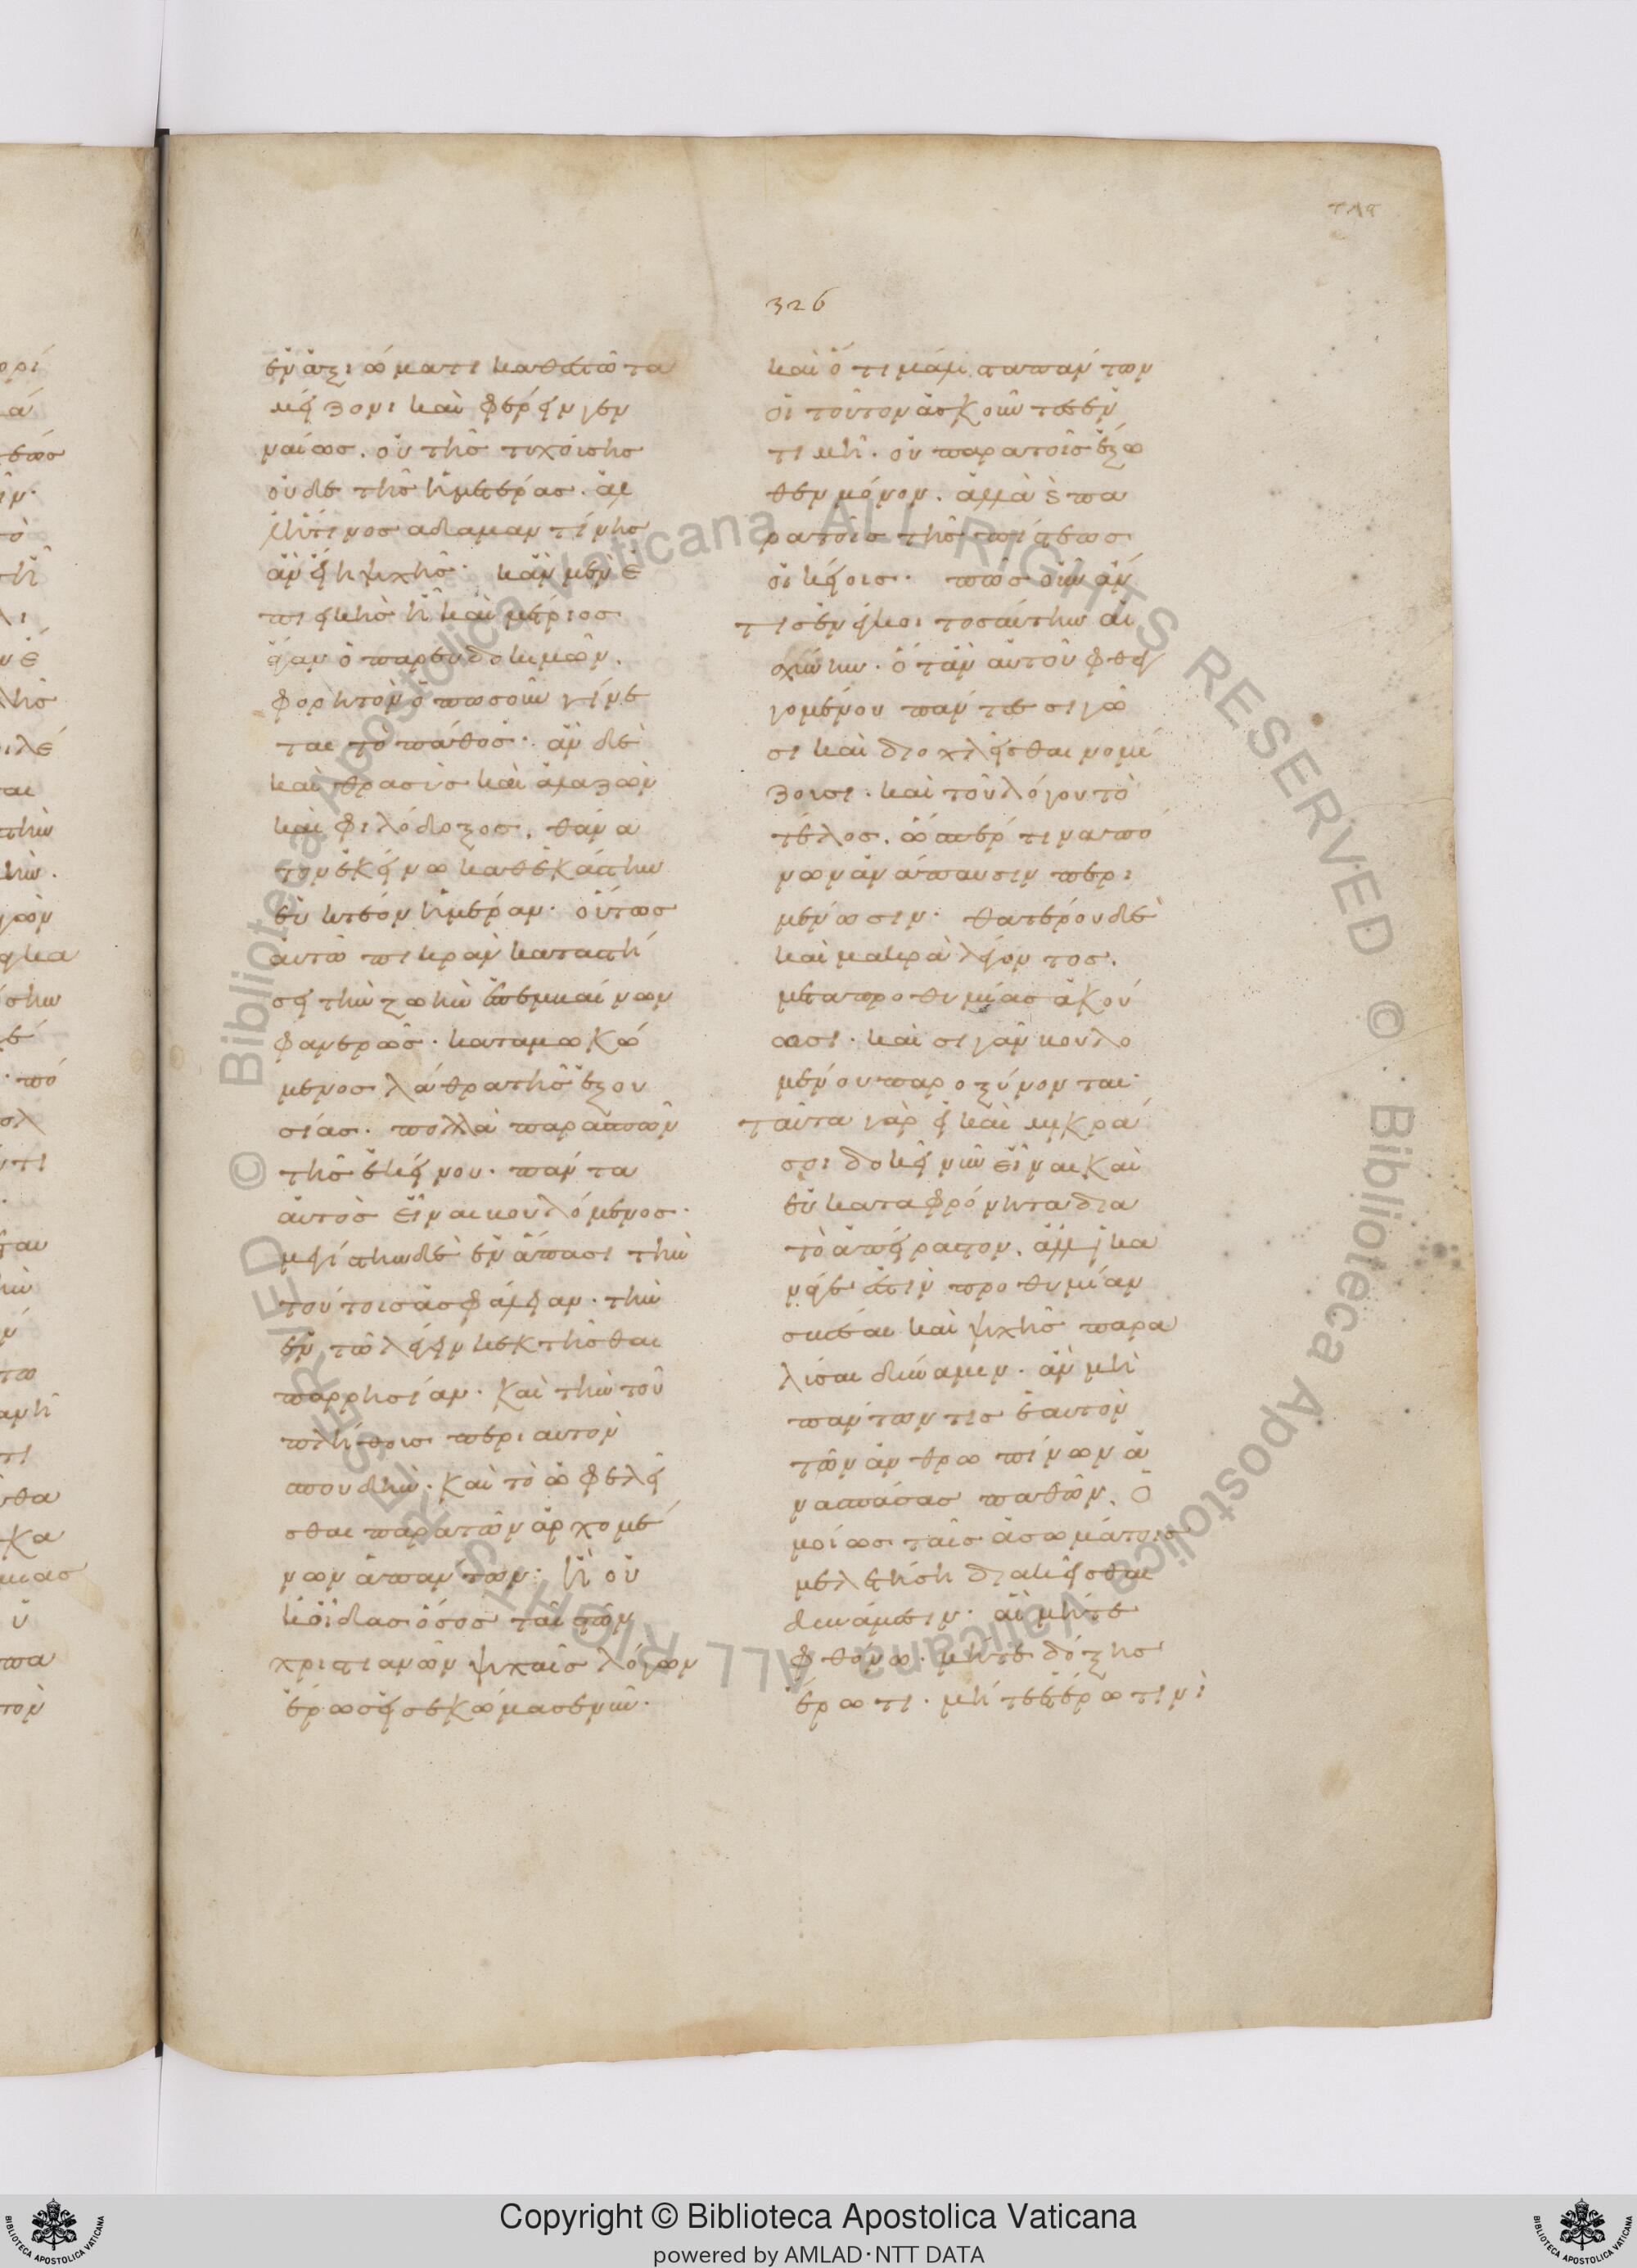 τλα
326
ἐν ἀξιώματι καθεστῶτα
μείζονι καὶ φέρειν γεν
ναίως. οὐ τῆς τυχούσης
οὐδὲ τῆς ἡμετέρας. ἀλ
λήτινος αδαμαντίνης
ἂν εἴη ψυχῆς. κἂν μὲν ἐ
πιεικὴς ἢ καὶ μέτριος
ἐὰν ὁ παρευδοκιμῶν.
φορητὸν ὁπωσοῦν γίνε
ται τὸ πάθος. ἂν δὲ
καὶ θρασὺς καὶ ἀλαζὼν
καὶ φιλόδοξος, θάνα
τον ἐκείνω καθεκάστην
εὐκτέον ἡμέραν. οὕτως
αὐτῶ πικρὰν καταστή
σει τὴν ζωὴν ἐπεμβαίνων
φανερῶς. καταμωκώ
μενος λάθρα τῆς ἐξου
σίας. πολλὰ παρασπῶν
τῆς ἐκείνου. πάντα
αὐτὸς εἶναι βουλόμενος.
μεγίστην δὲ ἐν ἅπασι τὴν
τούτοις ἀσφάλειαν. τὴν
ἐν τῶ λέγειν κεκτῆσθαι
παρρησίαν. καὶ τὴν τοῦ
πλήθους περὶ αυτὸν
σπουδὴν. καὶ τὸ ὠφελεῖ
σθαι παρα τῶν ἀρχομέ
νων ἁπάντων. ἢ οὐ
κ οἶδας ὅσος ταῖς τῶν
χριστιανῶν ψυχαῖς λόγων
ἔρως εἰσεκώμασε νῦν.
καὶ ὅτι μάλιστα πάντων
οἱ τοῦτον ἀσκοῦντες ἐν
τιμῆ. οὐ παρα τοῖς ἔξω
θεν μόνον. ἀλλὰ ϗ πα
ρα τοῖς τῆς πίστεως
οἰκείοις. πῶς οὖν ἄν
τις ἐνέγκοι τοσαύτην αἰ
σχύνην. ὅταν αὐτοῦ φθεγ
γομένου πάντες σιγῶ
σι καὶ διοχλεῖσθαι νομί
ζουσι. καὶ τοῦ λόγου τὸ
τέλος. ὥσπερ τινα πό
νων ἀνάπαυσιν περι
μένωσιν. θατέρου δὲ
καὶ μακρὰ λέγοντος.
μετα προθυμίας ἀκού
ωσι. καὶ σιγᾶν βουλο
μένου παροξύνονται.
ταῦτα γὰρ εἰ καὶ μικρά
σοι δοκεῖ νῦν εἶναι καὶ
εὐκαταφρόνητα δια
τὸ ἀπείραστον. ἀλλ ἱκα
νά γε ἐστὶν προθυμίαν
σβέσαι καὶ ψυχῆς παρα
λῦσαι δύναμιν. ἂν μὴ
πάντων τις ἑαυτὸν
τῶν ἀνθρωπίνων ἀ
νασπάσας παθῶν. ὁ
μοίως ταῖς ἀσωμάτοις
μελετήση διακεῖσθαι
δυνάμεσιν. αἳ μήτε
φθόνω. μήτε δόξης
ἔρωτι. μήτε ἑτέρω τινὶ